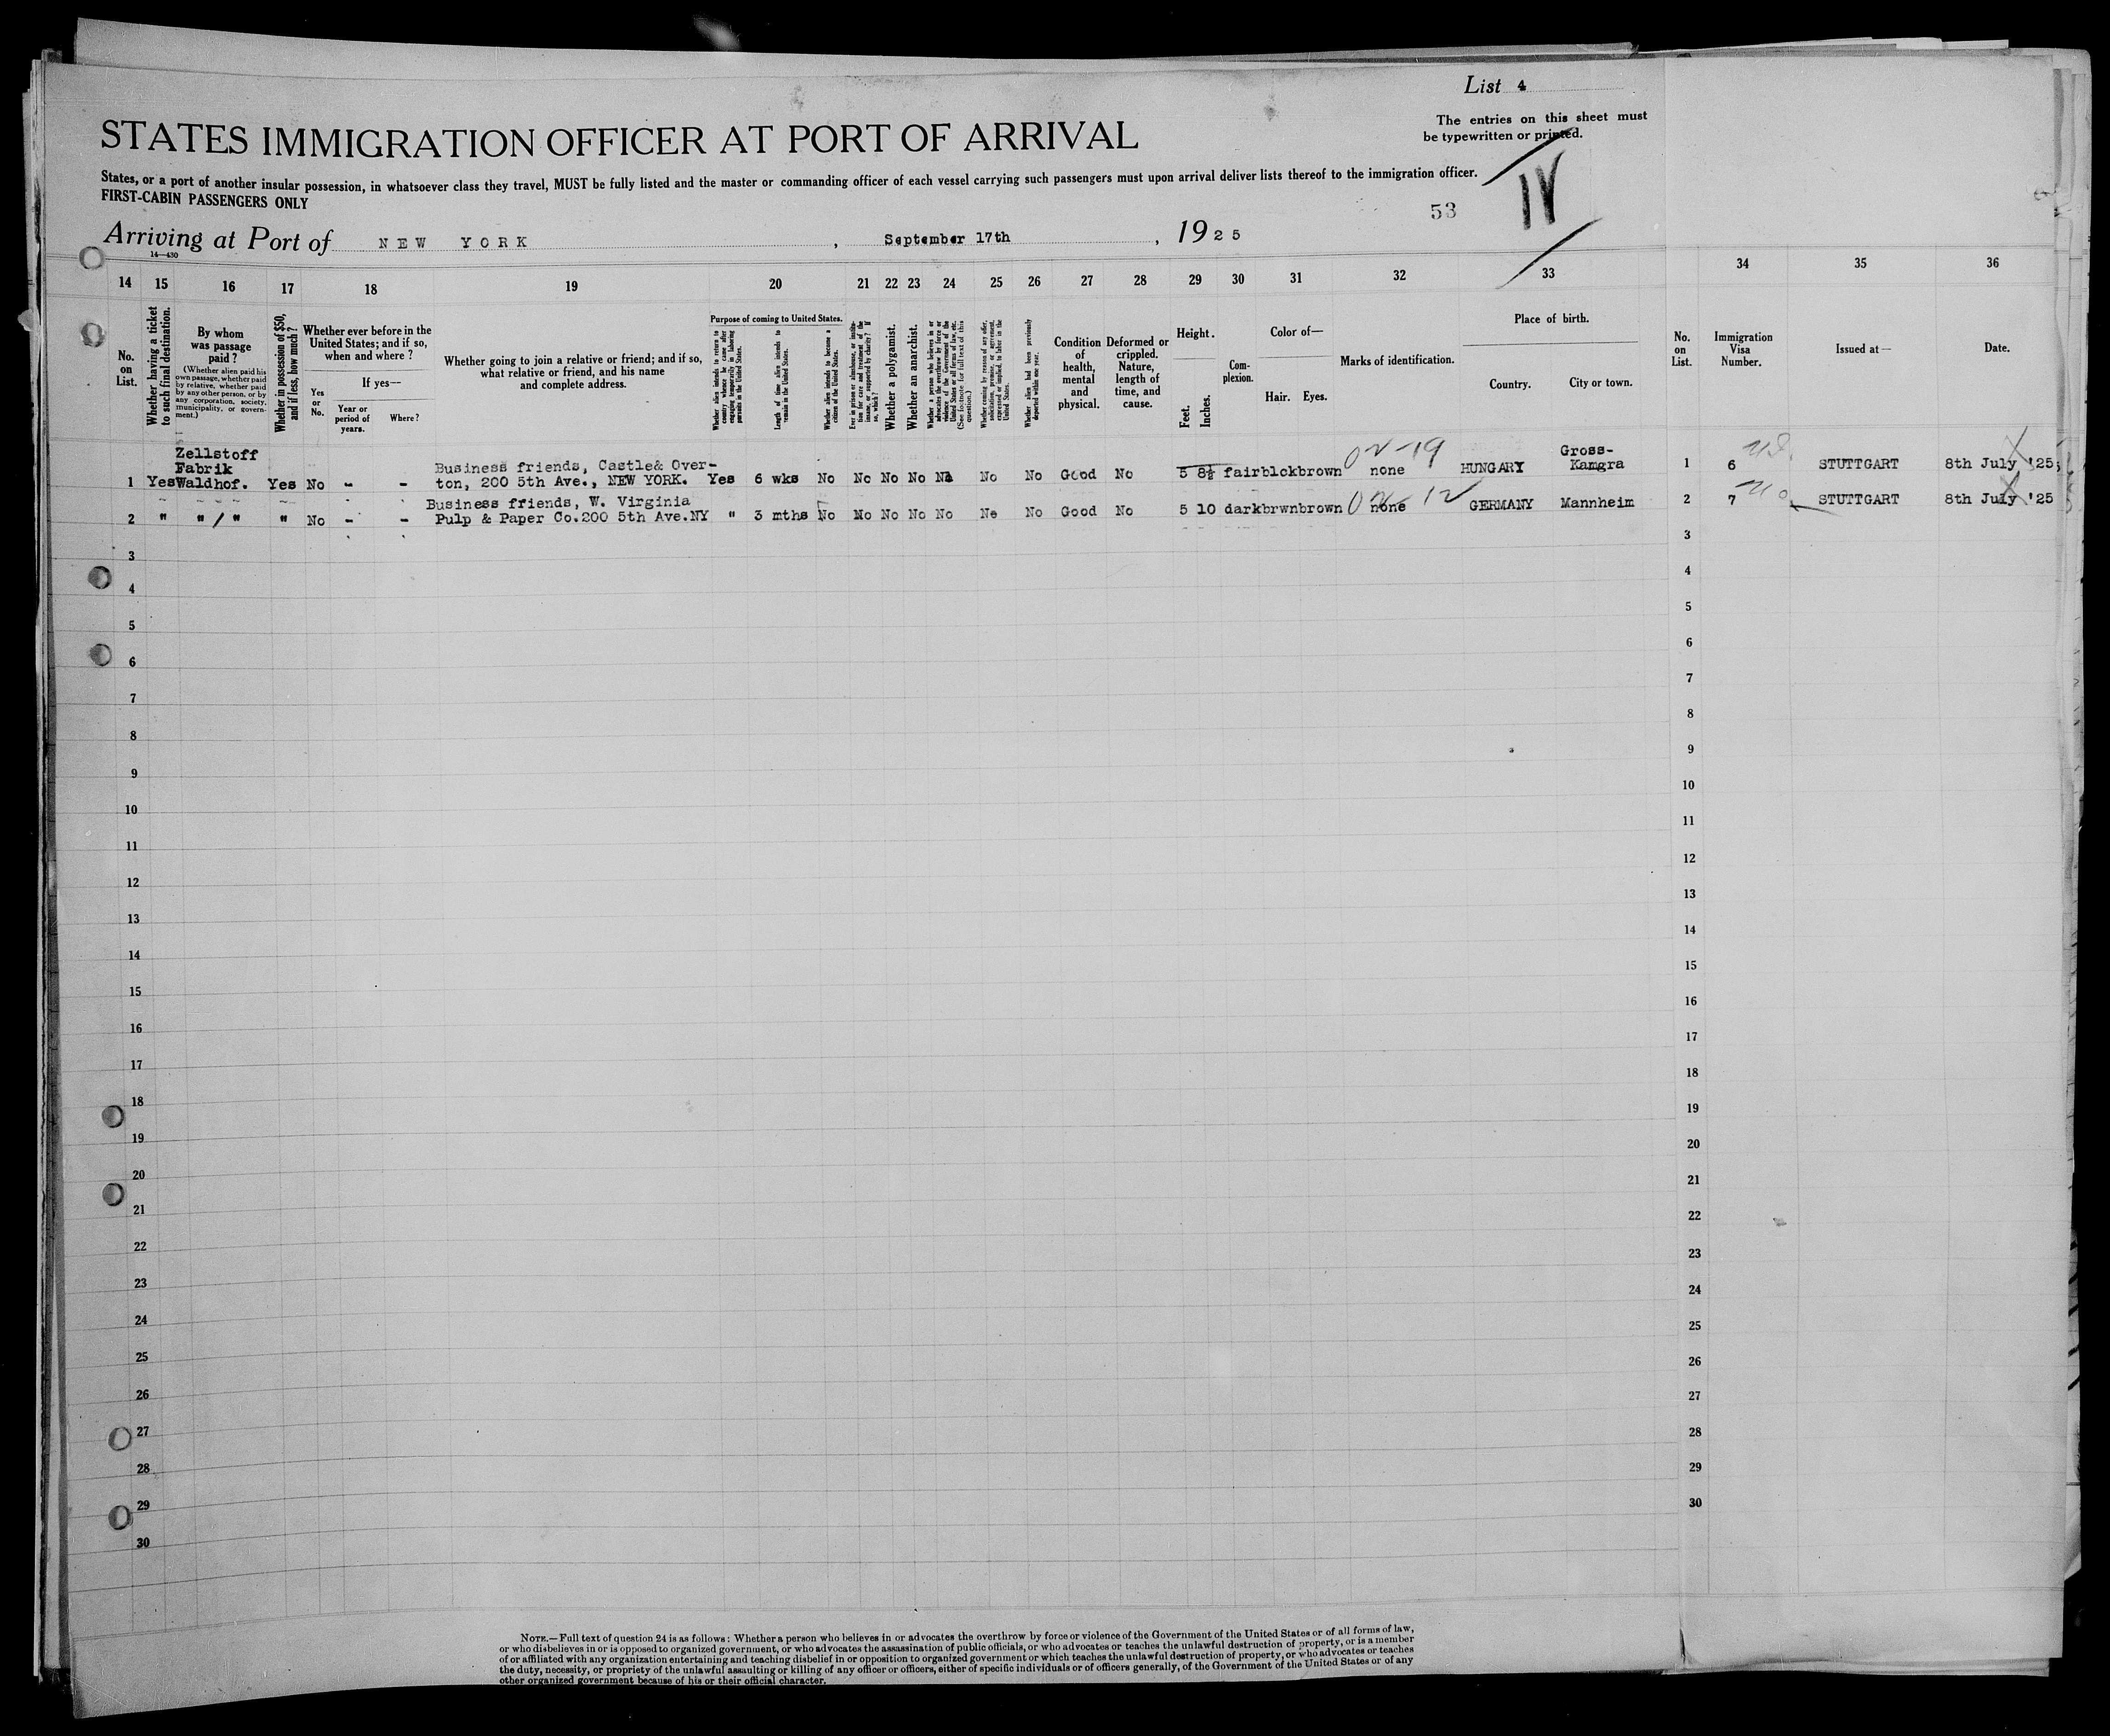 List 4
The entries on this sheet must
be typewritten or printed.
STATES IMMIGRATION OFFICER AT PORT OF ARRIVAL
States, or a port of another insular possession, in whatsoever class they travel, MUST be fully listed and the master or commanding officer of each vessel carrying such passengers must upon arrival deliver lists thereof to the immigration officer.
FIRST-CABIN PASSENGERS ONLY
IV
53
Arriving at Port of NEW YORK, September 17th, 1925
14—430
14 15 16 17 18 19 20 21 22 23 24 25 26 27 28 29 30 31 32 33 34 35 36
No. on List.
Whether having a ticket to such final destination.
By whom was passage paid?
(Whether alien paid his own passage, whether paid by relative, whether paid by any other person, or by any corporation, society, municipality, or government.)
Whether in possession of $50, and if less, how much?
Whether ever before in the United States; and if so, when and where?
Yes or No.
If yes—
Year or period of years.
Where?
Whether going to join a relative or friend; and if so, what relative or friend, and his name and complete address.
Purpose of coming to United States.
Whether alien intends to return to country whence he came after engaging temporarily in laboring pursuits in the United States.
Length of time alien intends to remain in the United States.
Whether alien intends to become a citizen of the United States.
Ever in prison or almshouse, or institution for care and treatment of the insane, or supported by charity? If so, which?
Whether a polygamist.
Whether an anarchist.
Whether a person who believes in or advocates the overthrow by force or violence of the Government of the United States or all forms of law, etc. (See footnote for full text of this question.)
Whether coming by reason of any offer, solicitation, promise, or agreement, expressed or implied, to labor in the United States.
Whether alien had been previously deported within one year.
Condition of health, mental and physical.
Deformed or crippled. Nature, length of time, and cause.
Height.
Feet. Inches.
Complexion.
Color of—
Hair. Eyes.
Marks of identification.
Place of birth.
Country. City or town.
No. on List.
Immigration Visa Number.
Issued at—
Date.
Zellstoff
Fabrik
1 Yes Waldhof. Yes No - - Business friends, Castle& Over-
ton, 200 5th Ave., NEW YORK. Yes 6 wks No No No No No No No Good No 5 8½ fair blck brown none HUNGARY Gross-
Kamgra 1 6 STUTTGART 8th July '25
2 " "/" " No - - Business friends, W. Virginia
Pulp & Paper Co.200 5th Ave.NY " 3 mths No No No No No No No Good No 5 10 dark brwn brown none GERMANY Mannheim 2 7 STUTTGART 8th July '25
3 3
4 4
5 5
6 6
7 7
8 8
9 9
10 10
11 11
12 12
13 13
14 14
15 15
16 16
17 17
18 18
19 19
20 20
21 21
22 22
23 23
24 24
25 25
26 26
27 27
28 28
29 29
30 30
NOTE.—Full text of question 24 is as follows: Whether a person who believes in or advocates the overthrow by force or violence of the Government of the United States or of all forms of law,
or who disbelieves in or is opposed to organized government, or who advocates the assassination of public officials, or who advocates or teaches the unlawful destruction of property, or is a member
of or affiliated with any organization entertaining and teaching disbelief in or opposition to organized government or which teaches the unlawful destruction of property, or who advocates or teaches
the duty, necessity, or propriety of the unlawful assaulting or killing of any officer or officers, either of specific individuals or of officers generally, of the Government of the United States or of any
other organized government because of his or their official character.